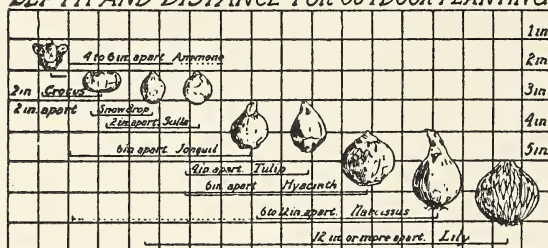 DEPTH AND DISTANCE FOR OUTDOOR PLANTING
1in
2in
4 to 6in. apart Anemone
3in
2in Crocus
2 in. apart Snowdrop
2in apart. Scilla
4in
6in apart Jonquil
5in
4in apart. Tulip
6in. apart Hyacinth
6 to 12 in. apart. Narcissus
12 in or more apart. Lily